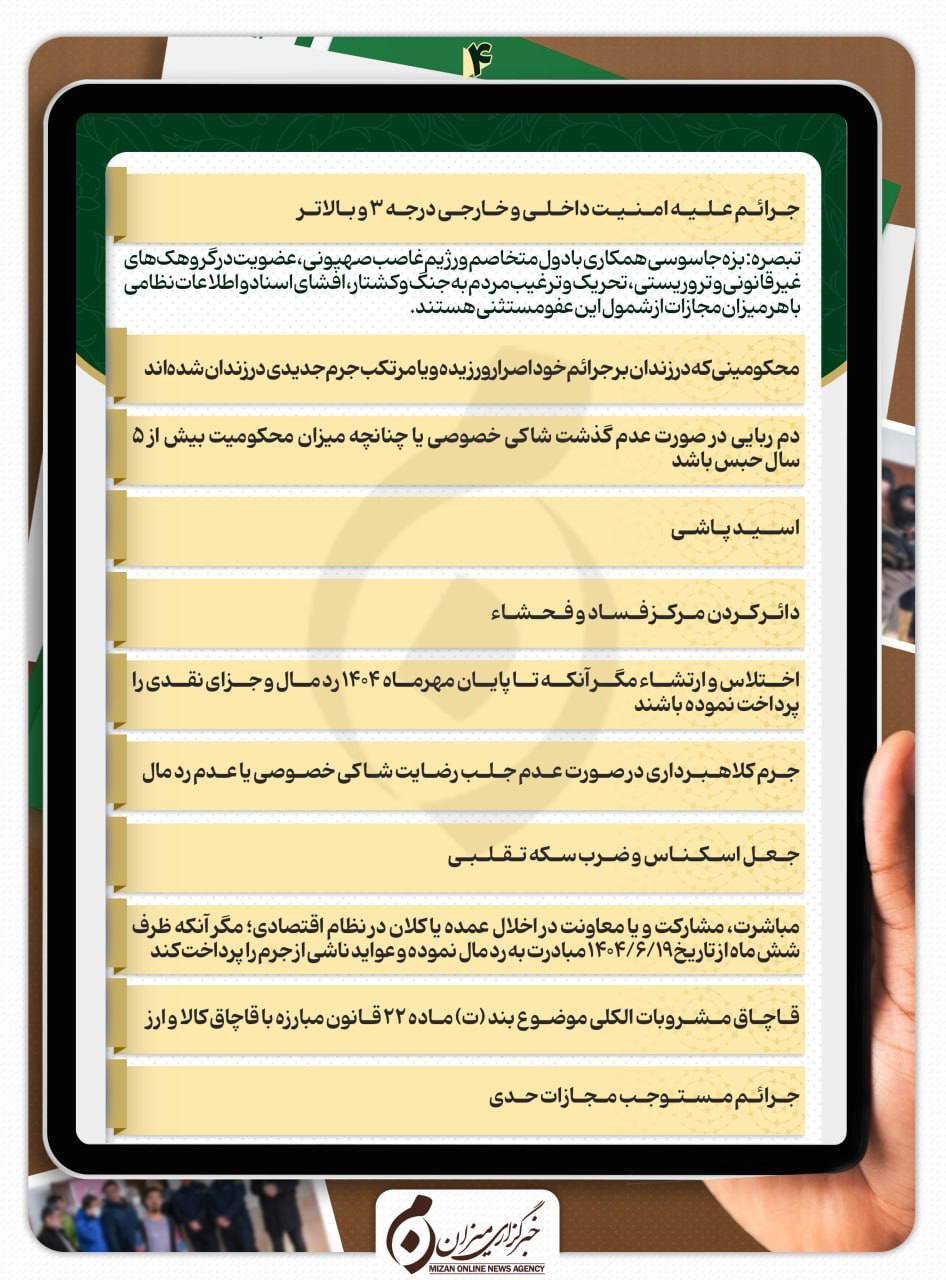 ۴
جرائم علیه امنیت داخلی و خارجی درجه ۳ و بالاتر
تبصره: بزه جاسوسی همکاری با دول متخاصم و رژیم غاصب صهیونی، عضویت در گروهک‌های
غیرقانونی و تروریستی، تحریک و ترغیب مردم به جنگ و کشتار، افشای اسناد و اطلاعات نظامی
با هر میزان مجازات از شمول این عفو مستثنی هستند.
محکومینی که در زندان بر جرائم خود اصرار ورزیده و یا مرتکب جرم جدیدی در زندان شده‌اند
دم ربایی در صورت عدم گذشت شاکی خصوصی یا چنانچه میزان محکومیت بیش از ۵
سال حبس باشد
اسیدپاشی
دائر کردن مرکز فساد و فحشاء
اختلاس و ارتشاء مگر آنکه تا پایان مهرماه ۱۴۰۴ رد مال و جزای نقدی را
پرداخت نموده باشند
جرم کلاهبرداری در صورت عدم جلب رضایت شاکی خصوصی یا عدم رد مال
جعل اسکناس و ضرب سکه تقلبی
مباشرت، مشارکت و یا معاونت در اخلال عمده یا کلان در نظام اقتصادی؛ مگر آنکه ظرف
شش ماه از تاریخ ۱۴۰۴/۶/۱۹ مبادرت به رد مال نموده و عواید ناشی از جرم را پرداخت کند
قاچاق مشروبات الکلی موضوع بند (ت) ماده ۲۲ قانون مبارزه با قاچاق کالا و ارز
جرائم مستوجب مجازات حدی
خبرگزاری میزان
MIZAN ONLINE NEWS AGENCY